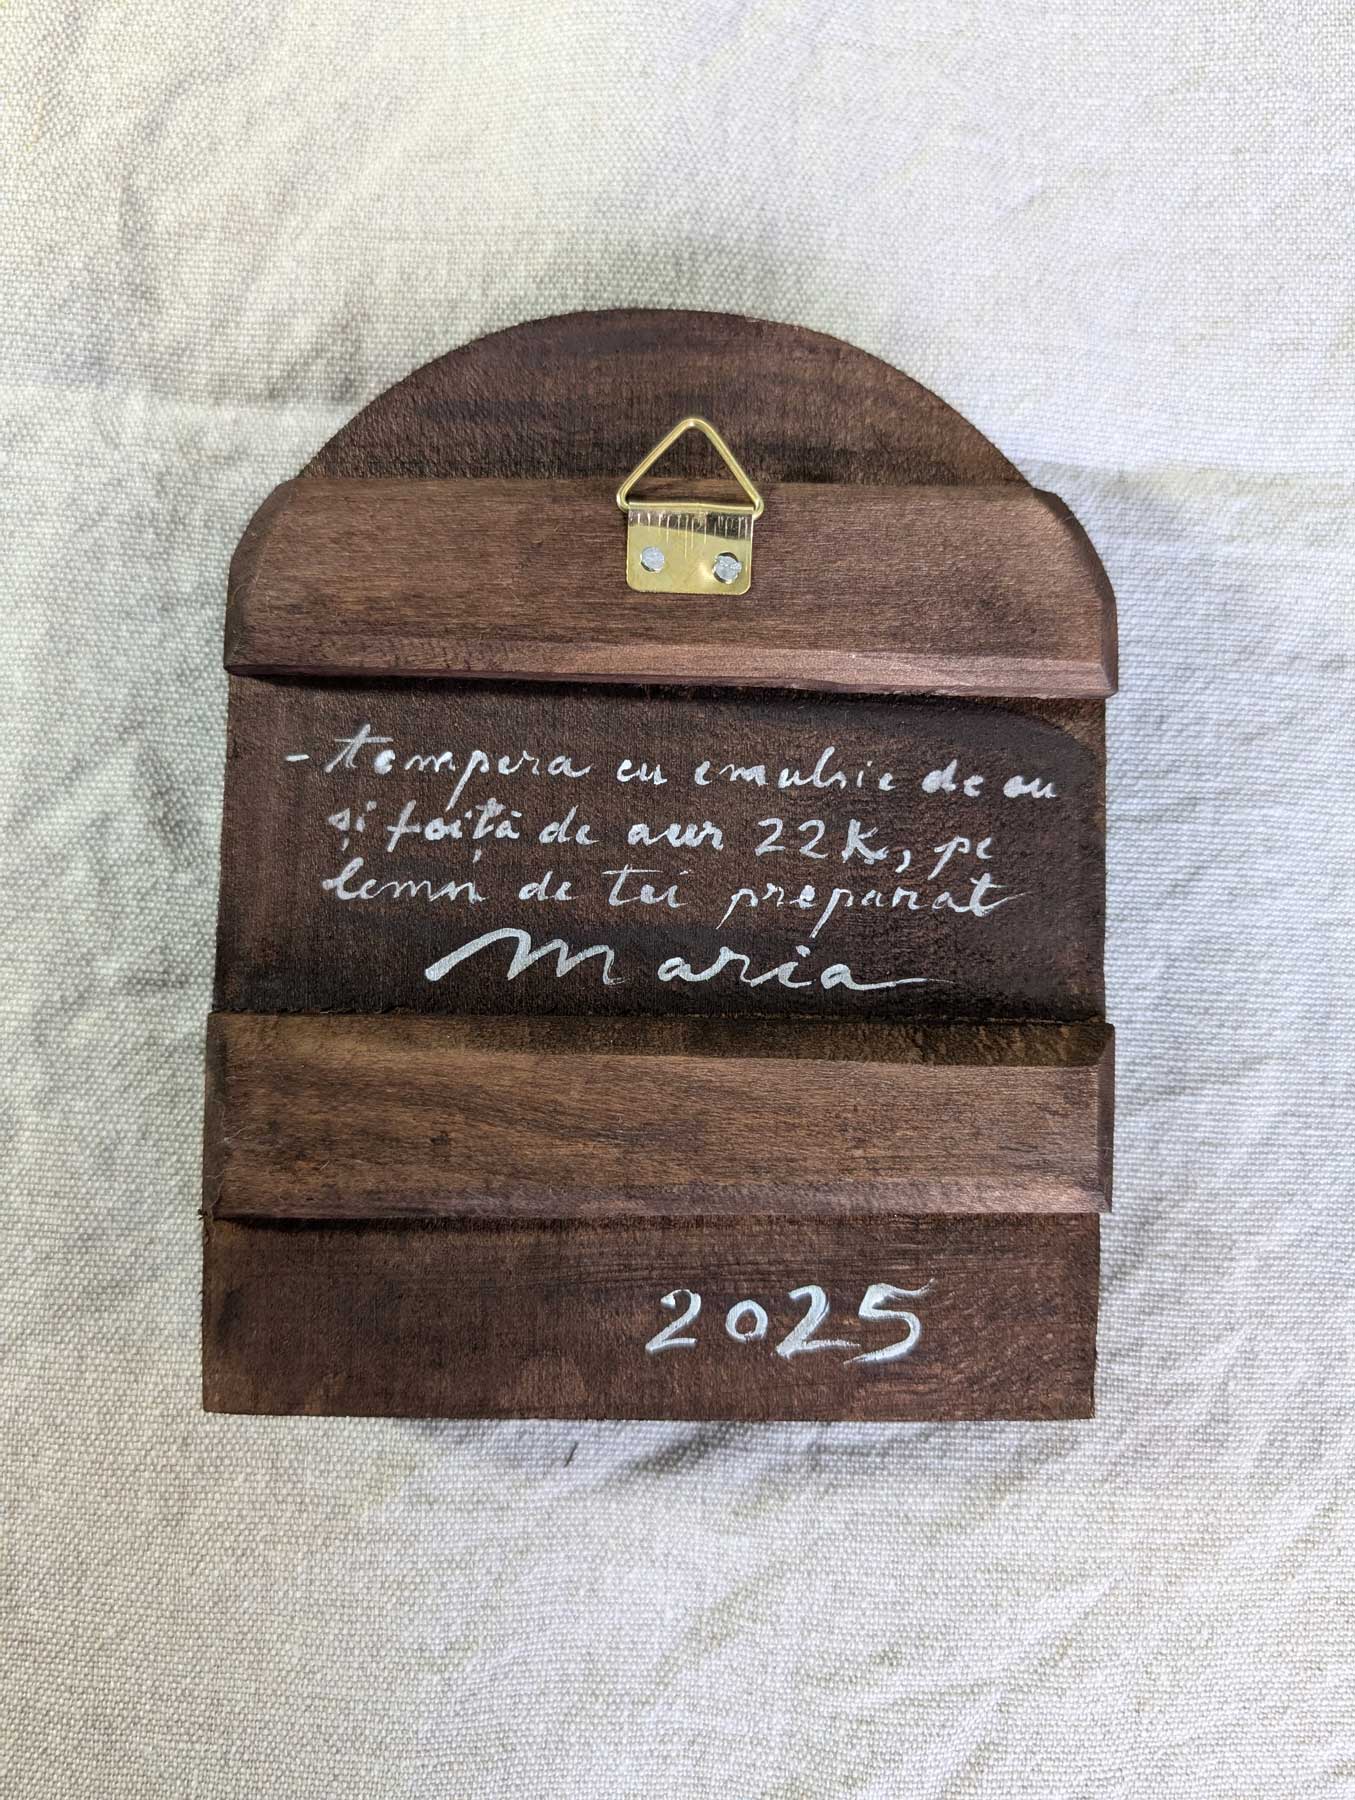 - tempera cu emulsie de ou
și foiță de aur 22K, pe
lemn de tei preparat
Maria
2025